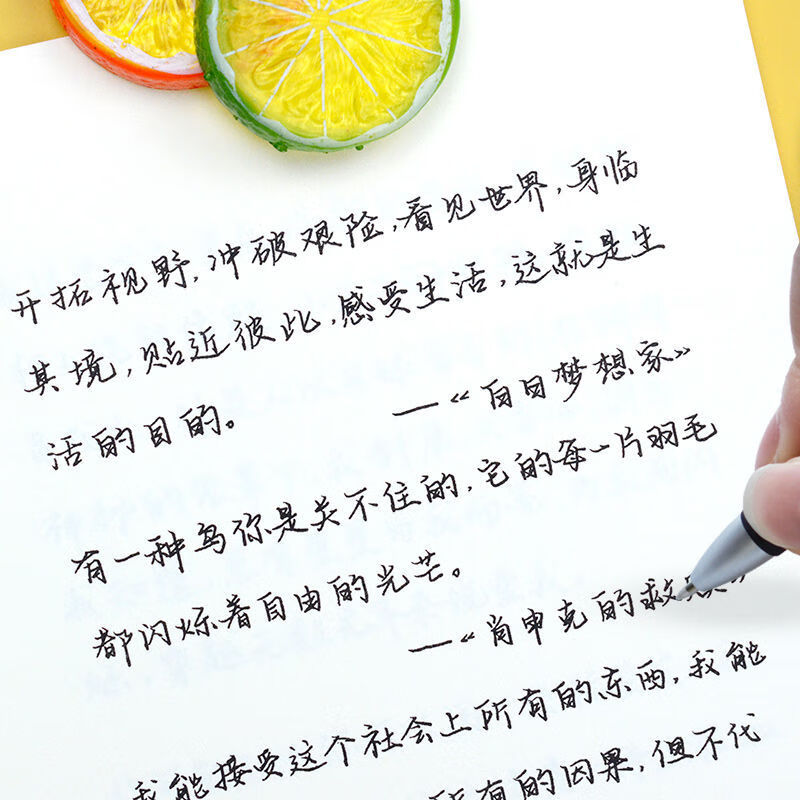 开拓视野，冲破艰险，看见世界，身临
其境，贴近彼此，感受生活，这就是生
活的目的。
—《白日梦想家》
有一种鸟你是关不住的，它的每一片羽毛
都闪烁着自由的光芒。
—《肖申克的救赎》
我能接受这个社会上所有的东西，我能
所有的因果，但不代